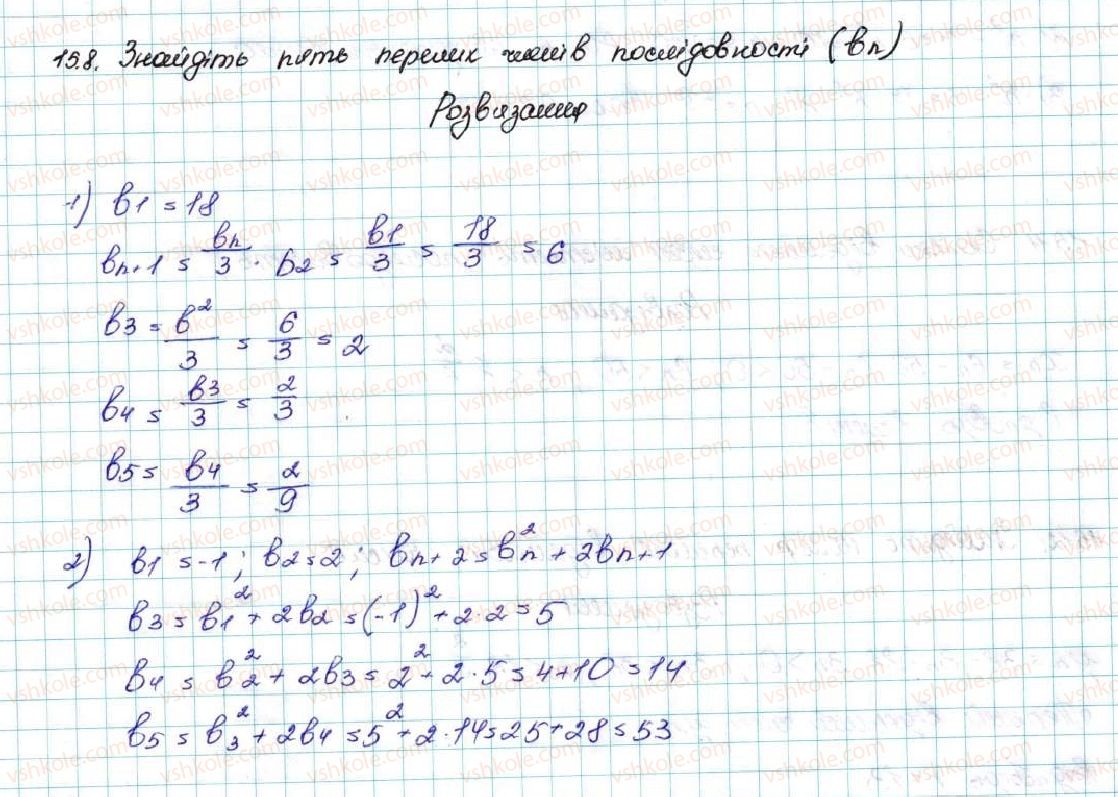 15.8. Знайдіть пять перших членів послідовності (bn)
Розвязання
1) b1 = 18
bn+1 = bn/3. b2 = b1/3 = 18/3 = 6
b3 = b²/3 = 6/3 = 2
b4 = b3/3 = 2/3
b5 = b4/3 = 2/9
2) b1 = -1; b2 = 2; bn+2 = bn² + 2bn+1
b3 = b1² + 2b2 = (-1)² + 2·2 = 5
b4 = b2² + 2b3 = 2² + 2·5 = 4+10 = 14
b5 = b3² + 2b4 = 5² + 2·14 = 25+28 = 53